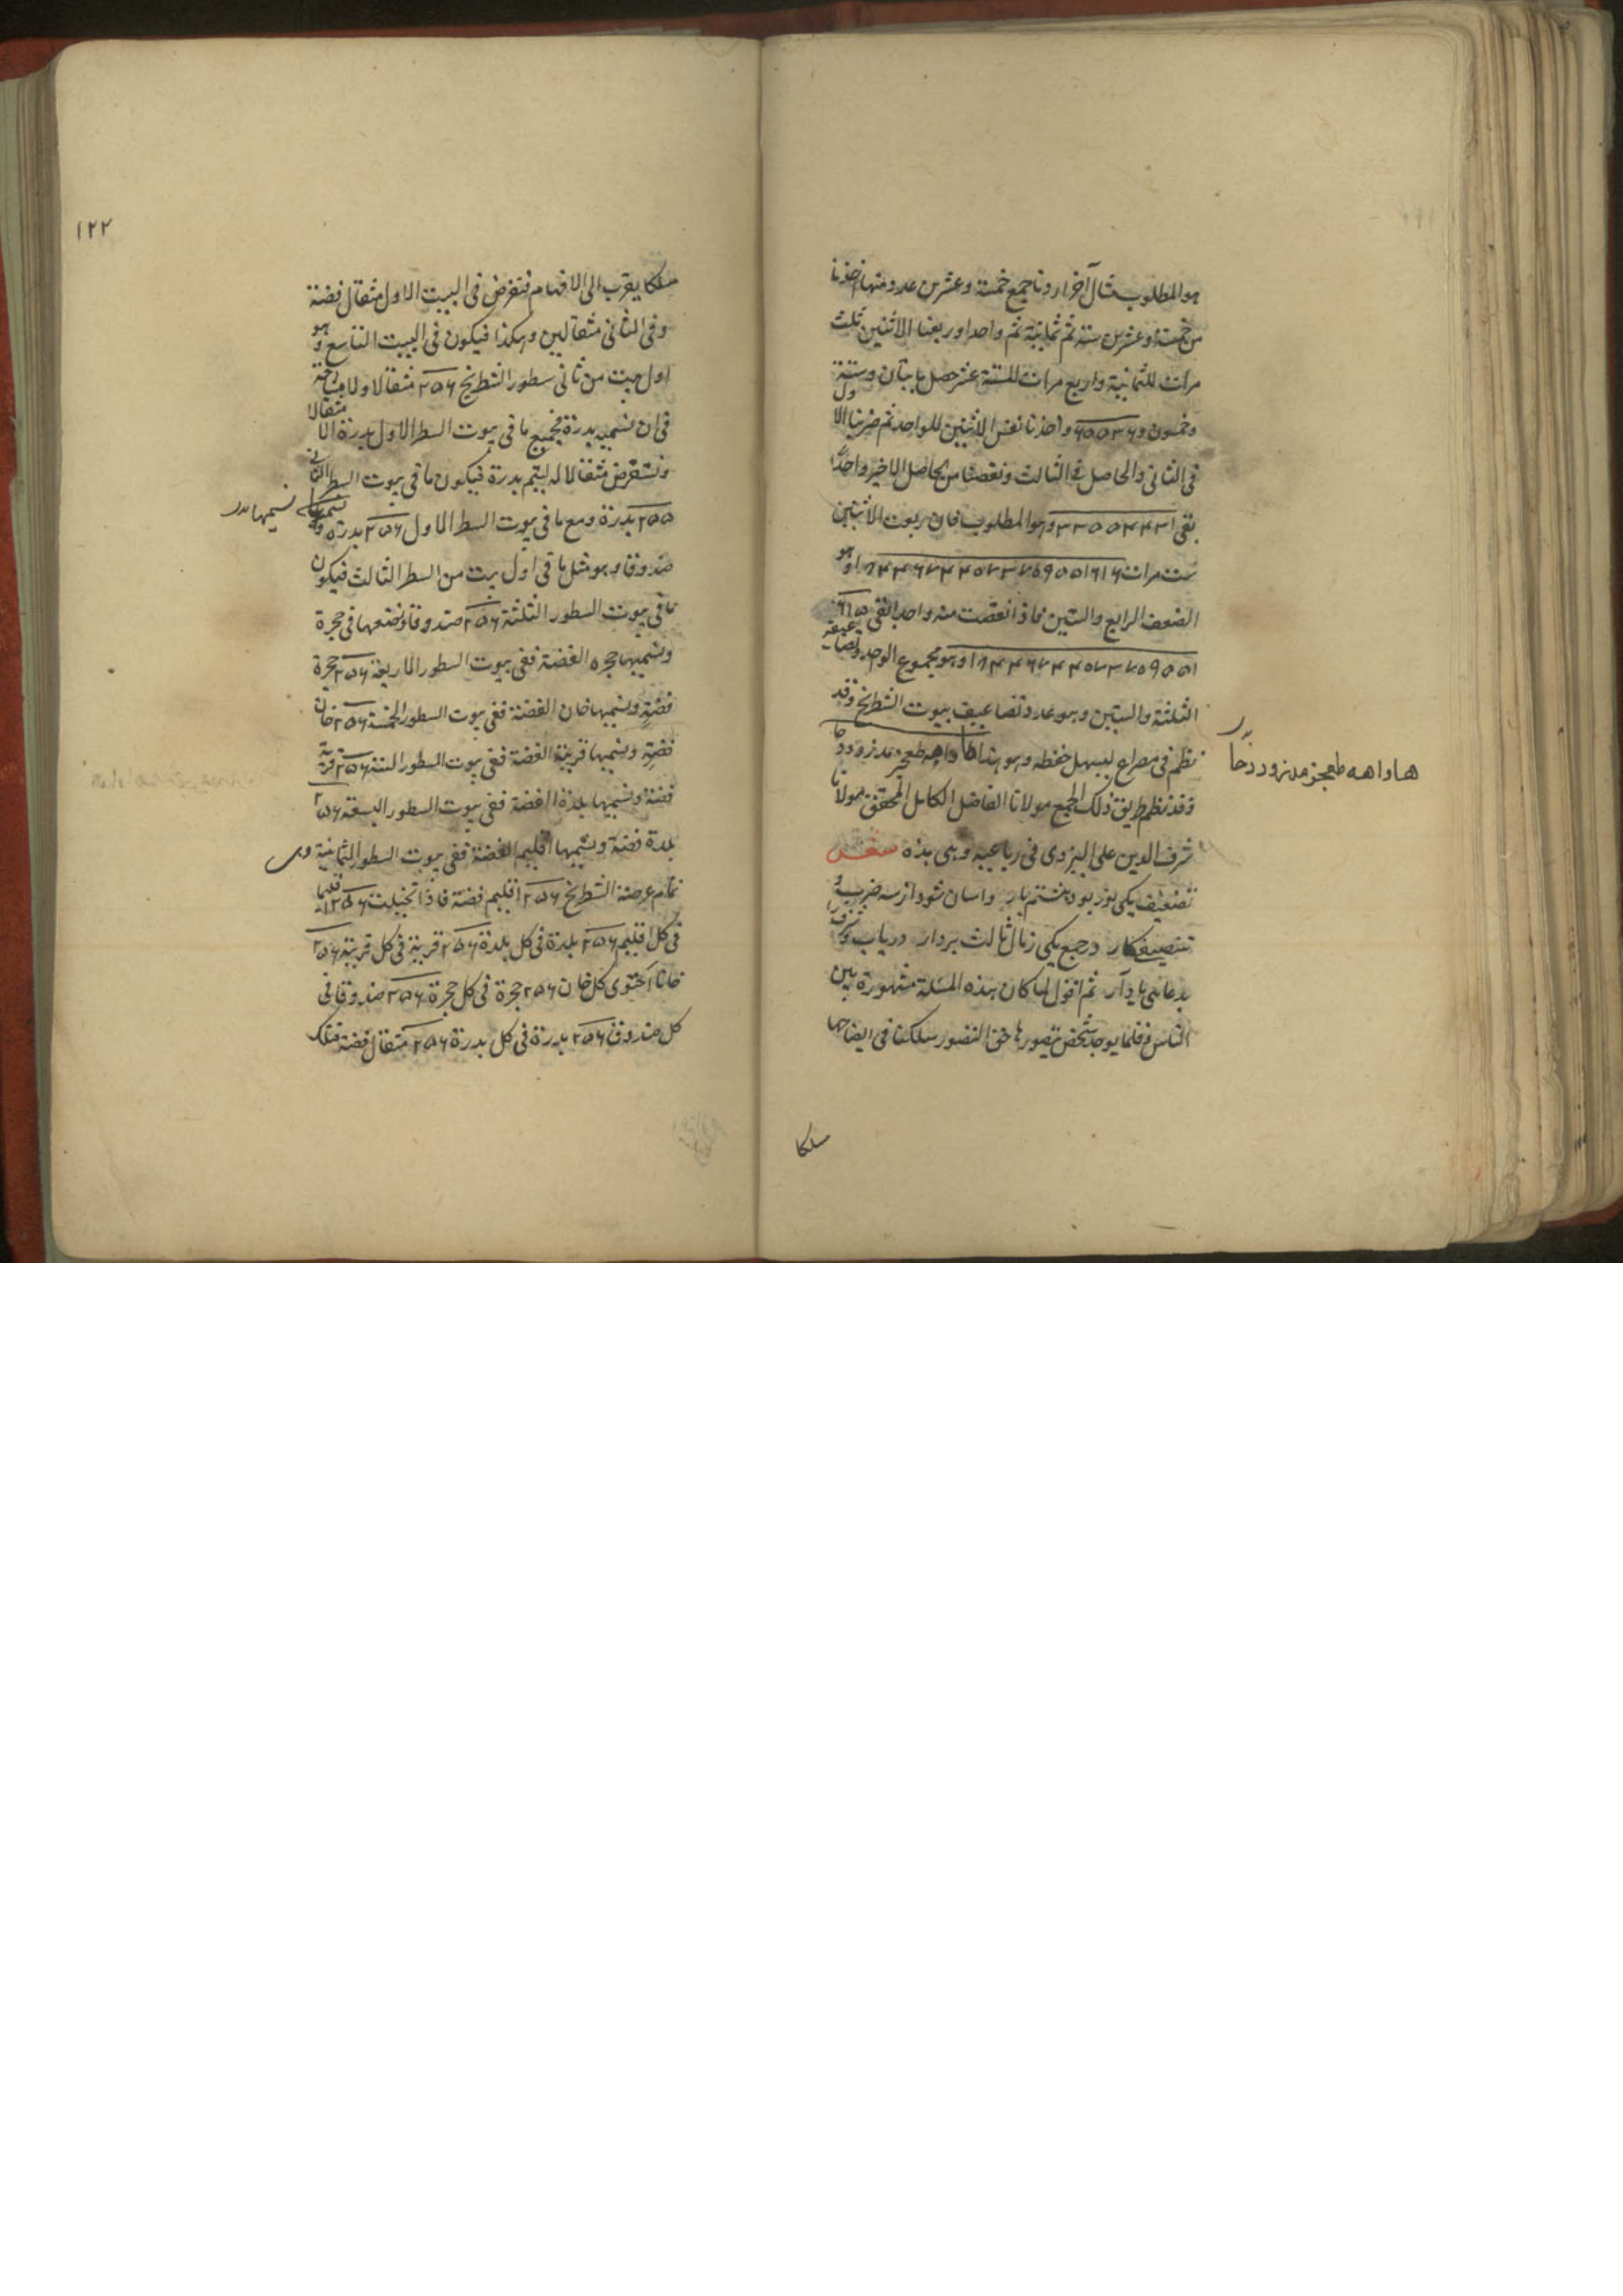 هو المطلوب مثال آخر اردنا جمع خمسة وعشرين عدد منها اخذنا
من خمسة وعشرين ستة عشر ثم ثمانية ثم واحدا وربعنا الاثنين ثلث
مرات للثمانية واربع مرات للستة عشر حصل مايتان وستة
وخمسون و ٦٥٥٣٦ واخذنا نفس الاثنين للواحد ثم ضربنا الاول
فى الثانى والحاصل فى الثالث ونقصنا من الحاصل الاخير واحدًا
بقى ٣٣٥٥٤٤٣١ وهو المطلوب فان ربوت الاثنين
ست مرات ١٨٤٤٦٧٤٤٠٧٣٧٠٩٥٥١٦١٦ وهو
الضعف الرابع والستين فاذا نقصت منه واحد ابقى ٦١٥
١٨٤٤٦٧٤٤٠٧٣٧٠٩٥٥١ وهو مجموع الواحد وتضاعيفه
الثلثة والستين وهو عدد تضاعيف بيوت الشطرنج وقد
نظم فى مصراع ليسهل حفظه وهو هذا هاواهه طعجز مدنزوددحا
وقد نظم طريق ذلك الجمع مولانا الفاضل الكامل المحقق مولانا
شرف الدين على اليزدى فى رباعيه وهى هذه شعر
تضعيف يكى بود بهشتم بار واسان شود از سه ضرب و
تنصيف كار در جمع يكى زمال ثالث بردار درياب و شرف را
بدعايى ياد آر ثم اقول لما كان هذه المسئلة مشهورة بين
الناس وقلما يوجد شخص تصورها حق التصور سلكت فى ايضاحها
هاواهه طعجز مدنزوددحا
مسلكا
١٢٢
مسلكا يقرب الى الافهام فنفرض فى البيت الاول مثقال فضة
وفى الثانى مثقالين وهكذا فيكون فى البيت التاسع وهو
اول بيت من ثانى سطور الشطرنج ٢٥٦ مثقالا ولا مشاحة
فى ان نسميه بدرة فجميع ما فى بيوت السطر الاول بدرة الا مثقالا
ونستقرض مثقالا له ليتم بدرة فيكون ما فى بيوت السطر الثانى
٢٥٥ بدرة ومع ما فى بيوت السطر الاول ٢٥٦ بدره
نسميها
صندوقا وهو مثل ما فى اول بيت من السطر الثالث فيكون
ما فى بيوت السطور الثلثة ٢٥٦ صندوقا ونضعها فى حجرة
ونسميها حجره الفضة ففى بيوت السطور الاربعة ٢٥٦ حجرة
فضةٍ ونسميها خان الفضة ففى بيوت السطور الخمسة ٢٥٦ خان
فضةٍ ونسميها قرية الفضة ففى بيوت السطور الستة ٢٥٦ قرية
فضة ونسميها بلدة الفضة ففى بيوت السطور السبعة ٢٥٦
بلدة فضة ونسميها اقليم الفضة ففى بيوت السطور الثمانية وهى
تمام عرصة الشطرنج ٢٥٦ اقليم فضة فاذا تخيلت ٢٥٦ اقليما
فى كل اقليم ٢٥٦ بلدة فى كل بلدة ٢٥٦ قرية فى كل قرية ٢٥٦
خانا احتوى كل خان ٢٥٦ حجرة فى كل حجرة ٢٥٦ صندوقا فى
كل صندوق ٢٥٦ بدرة فى كل بدرة ٢٥٦ مثقال فضة فتلك